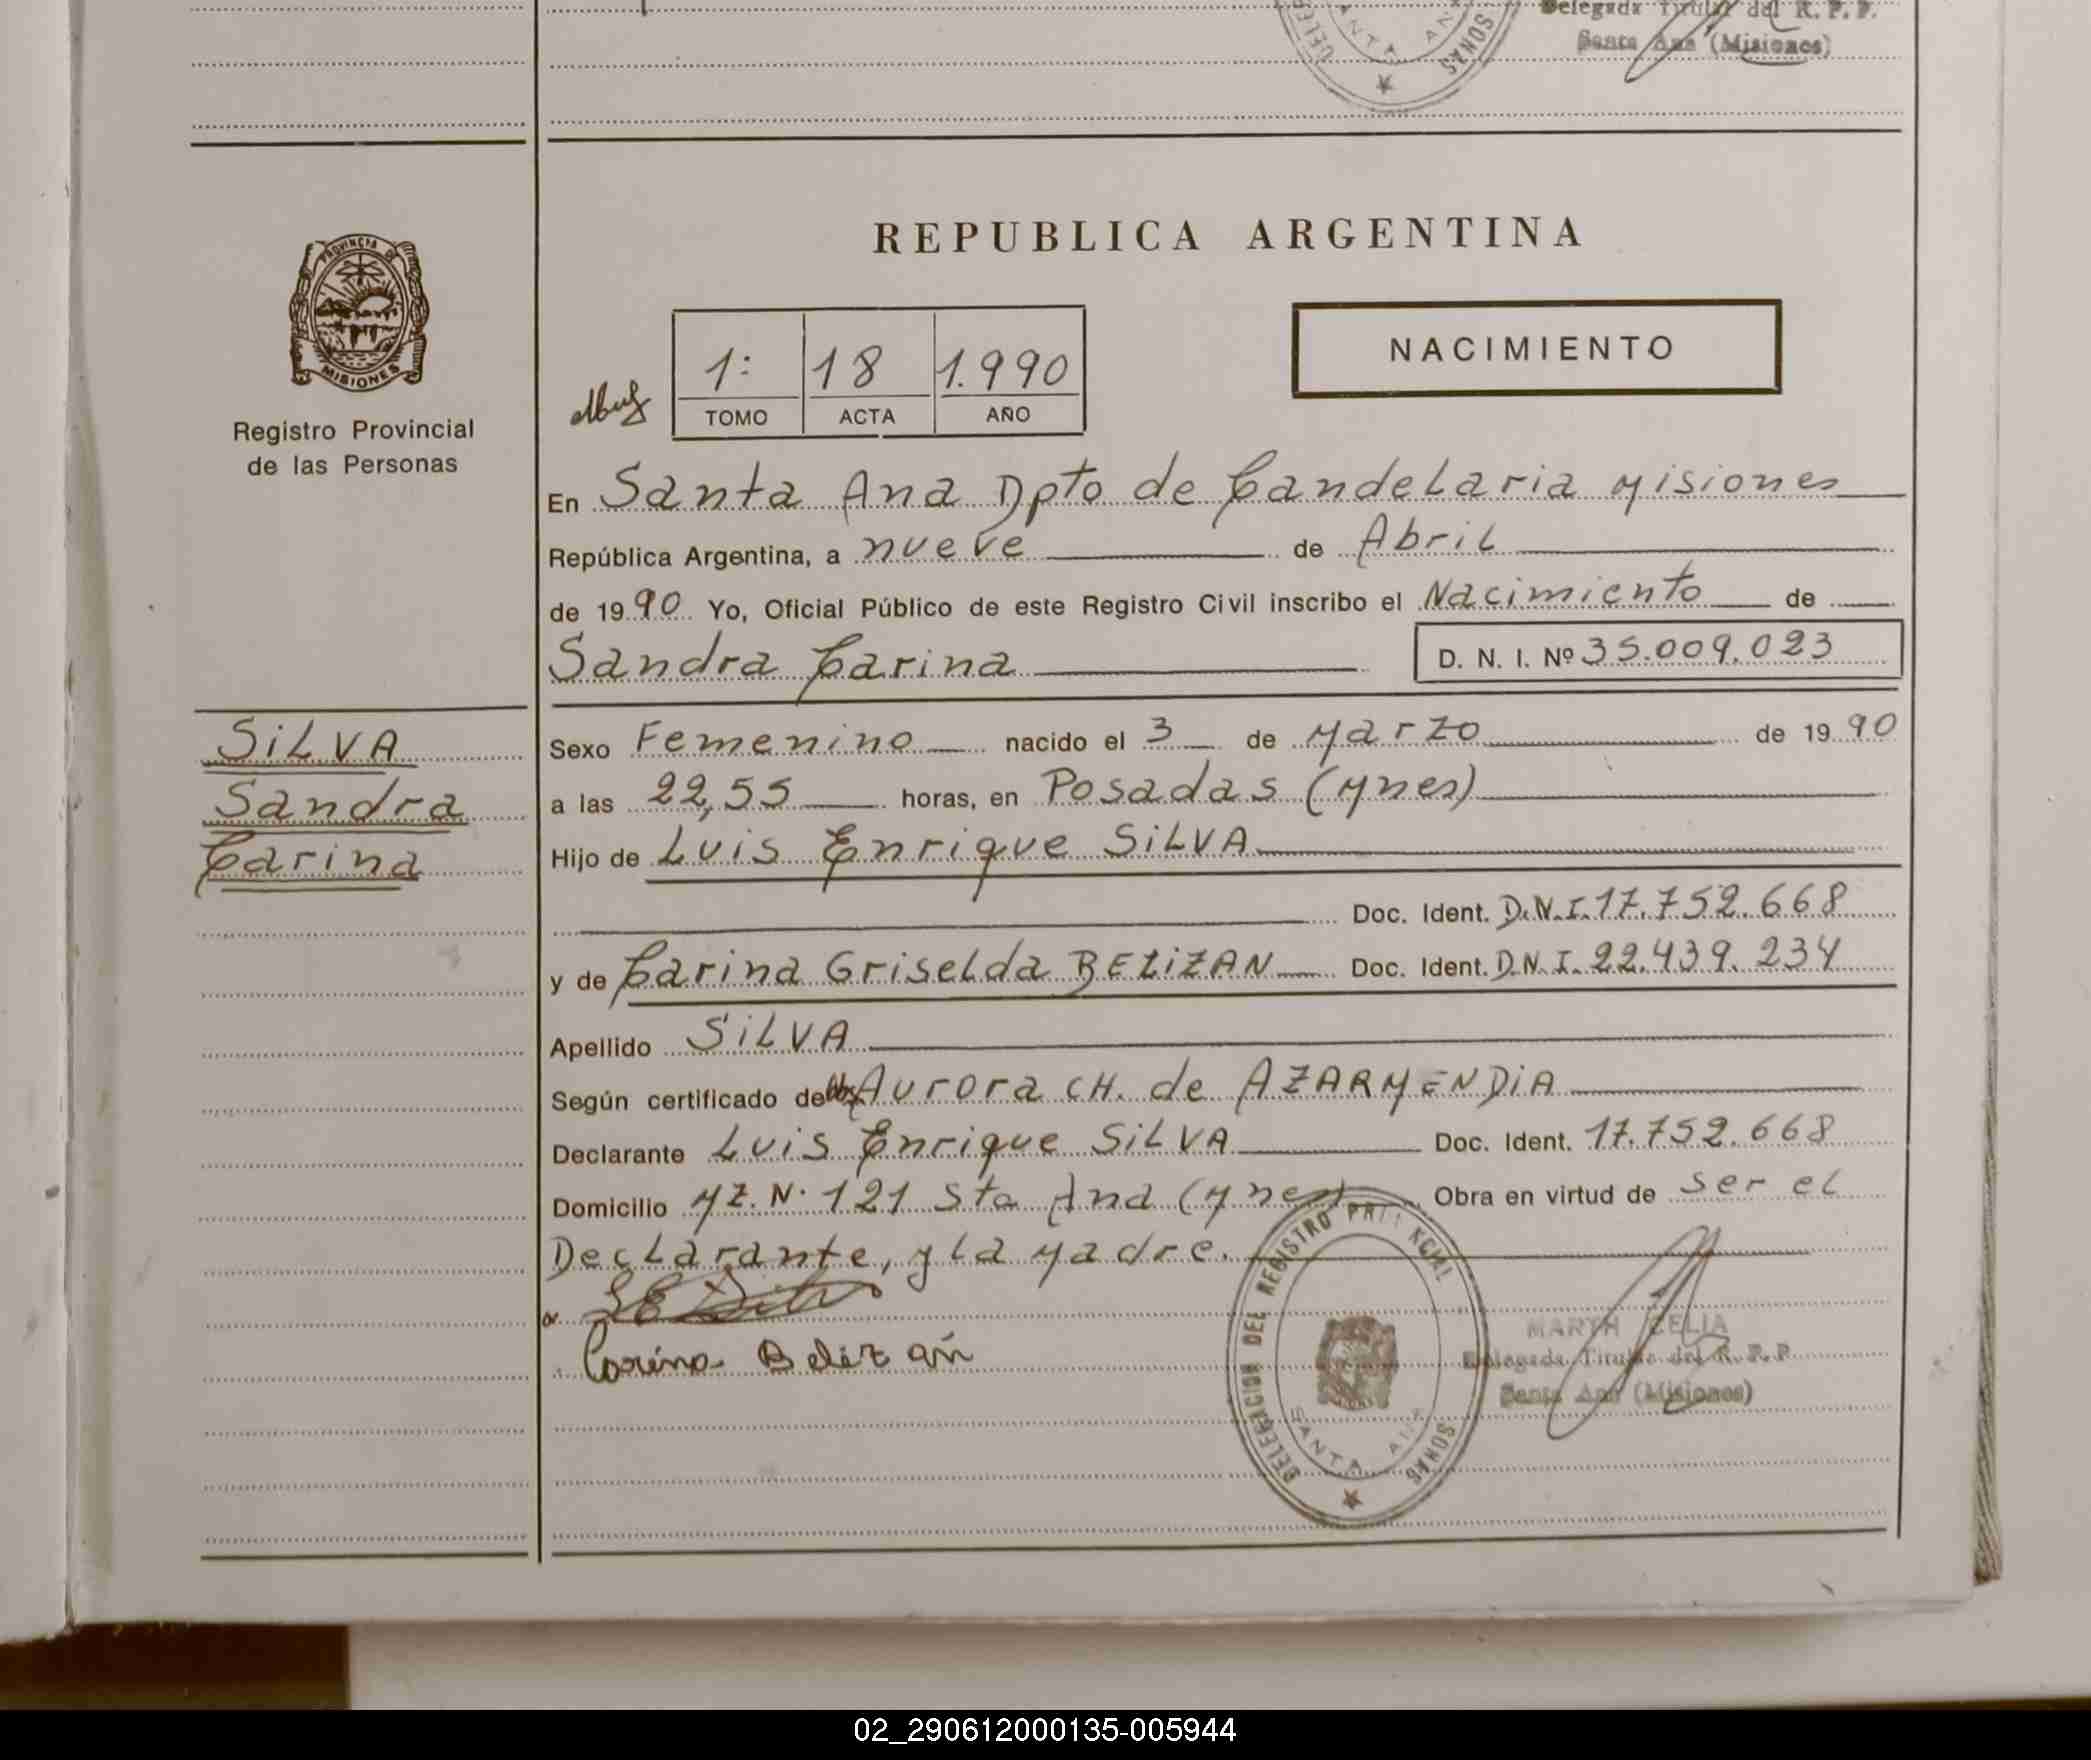 Delegada Titular del R. P. P.
Santa Ana (Misiones)
SANTA ANA
SONAS
REPUBLICA ARGENTINA
PROVINCIA DE
MISIONES
Registro Provincial
de las Personas
1: 18 1.990
TOMO ACTA AÑO
NACIMIENTO
En Santa Ana Dpto de Candelaria Misiones
República Argentina, a nueve de Abril
de 1990 Yo, Oficial Público de este Registro Civil inscribo el Nacimiento de
Sandra Carina
D. N. I. Nº 35.009.023
SiLVA
Sandra
Carina
Sexo Femenino nacido el 3 de Marzo de 1990
a las 22,55 horas, en Posadas (Mnes)
Hijo de Luis Enrique SiLVA
Doc. Ident. D.N.I. 17.752.668
y de Carina Griselda BELiZAN Doc. Ident. D.N.I. 22.439.234
Apellido SiLVA
Según certificado de Aurora CH. de AZARMENDiA
Declarante Luis Enrique SiLVA Doc. Ident. 17.752.668
Domicilio MZ. N· 121 Sta Ana (Mnes) Obra en virtud de ser el
Declarante, y la Madre.
Carina Belizán
DELEGACION DEL REGISTRO
SONAS
SANTA ANA
CELIA
Delegada Titular del R. P. P.
Santa Ana (Misiones)
02_290612000135-005944